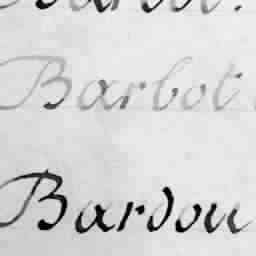 Barbot
Bardou